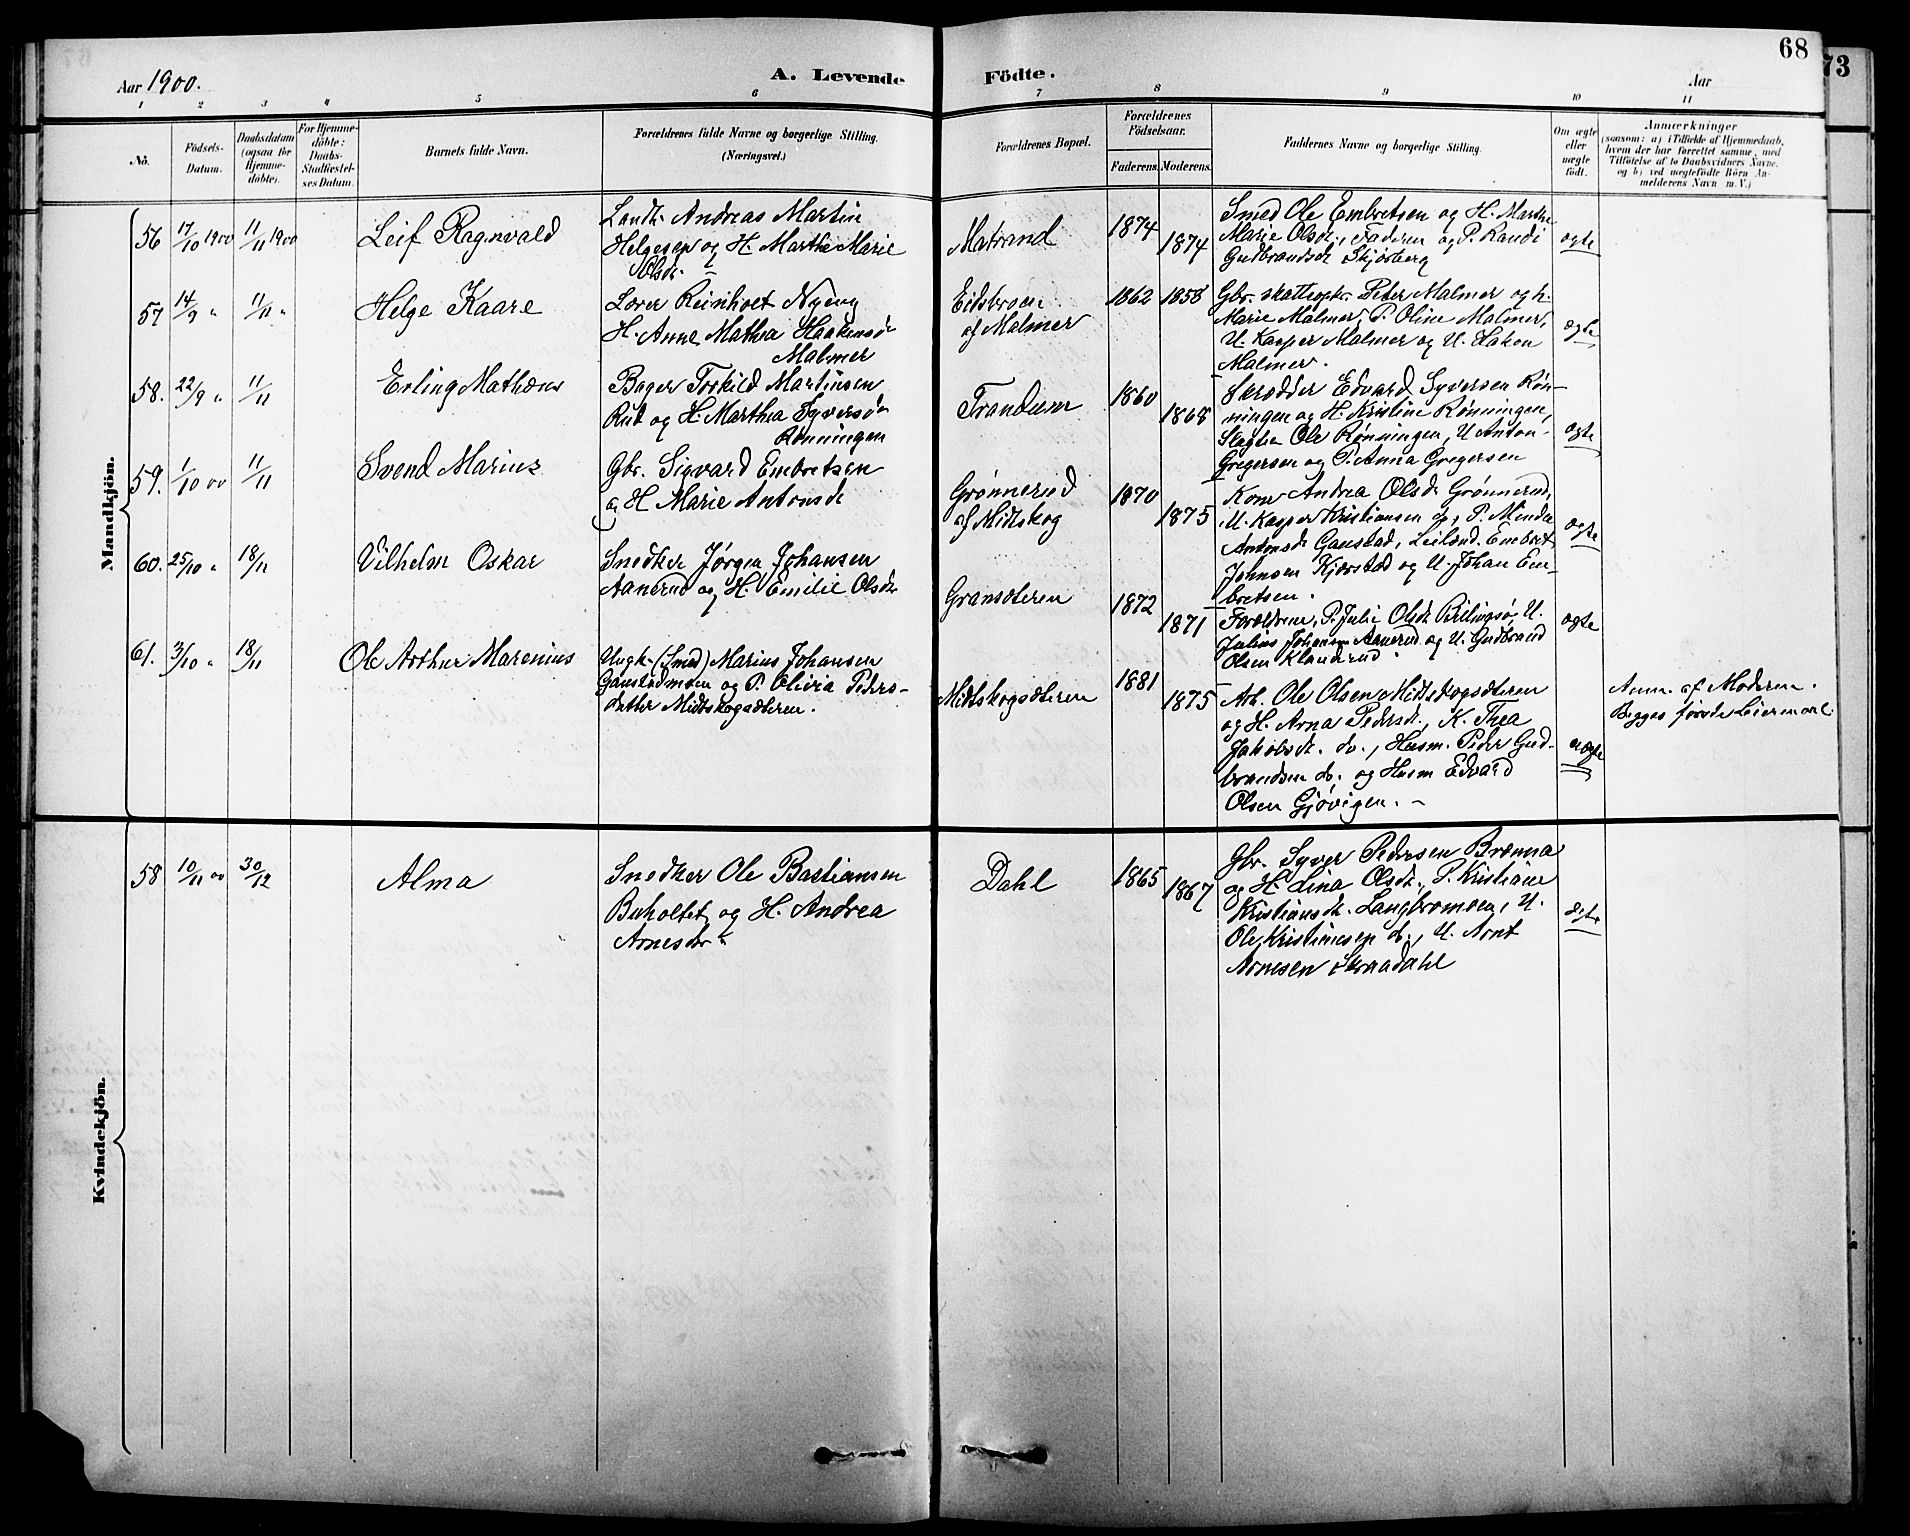 68
73
Aar 1900.
A. Levende
Födte.
Aar
1 2 3 4 5 6 7 8 9 10 11
No.
Födsels-
Datum.
Daabsdatum
(ogsaa for
Hjemme-
döbte).
For Hjemme-
döbte:
Daabs-
Stadfæstel-
ses Datum.
Barnets fulde Navn.
Forældrenes fulde Navne og borgerlige Stilling.
(Næringsvei.)
Forældrenes Bopæl.
Forældrenes
Födselsaar.
Faderens. Moderens.
Faddernes Navne og borgerlige Stilling.
Om ægte
eller
uægte
födt.
Anmærkninger
(saasom: a) i Tilfælde af Hjemmedaab,
hvem der har forrettet samme, med
Tilföielse af to Daabsvidners Navne,
og b) ved uægtefödte Börn An-
melderens Navn m. V.)
Mandkjön.
56 17/10 1900 11/11 1900
Leif Ragnvald
Landh. Andreas Martin
Helgesen og H. Marthe Marie
Olsdr.
Matrand
1874
1874
Smed Ole Embretsen og H. Marthe
Marie Olsdr., Faderen og P. Randi
Gudbrandsdr Skjøsberg
ægte
57 14/9 " 11/11 "
Helge Kaare
Lærer Reinholt Nyeng
H. Anne Mathea Haakensdr
Malmer
Eidsbroen
af Malmer
1862 1858
Gbr. skatteopkr. Peter Malmer og h.
Marie Malmer, P. Oline Malmer,
U. Kasper Malmer og U. Hakon
Malmer.
ægte
58. 22/9 " 11/11
Erling Mathæus
Bager Torkild Martinsen
Rud og H. Marthea Syversdr
Rønningen
Trandum
1860
1868
Skrædder Edvard Syversen Røn-
ningen og H. Kristine Rønningen,
Slagter Ole Rønningen, U Anton
Gregersen og P. Anna Gregersen
ægte
59. 1/10 00 11/11
Svend Marius
Gbr. Sigvard Embretsen
og H Marie Antonsdr
Grønnerud
af Midtskog
1870
1875
Kone Andrea Olsdr Grønnerud,
U. Kasper Kristiansen do, P. Minda
Antonsdr Ganstad, Leilænd. Embret
Johnsen Kjørstad og U. Johan Em-
bretsen.
ægte
60. 25/10 " 18/11
Vilhelm Oskar
Snedker Jørgen Johansen
Aanerud og H. Emilie Olsdr
Gransæteren
1872
1871
Forældrene, P. Julie Olsdr
Julius Johansen Aanerud og U. Gudbrand
Olsen Klanderud.
ægte
61. 3/10 " 18/11
Ole Arthur Marenius
Ungk. (Smed) Marius Johansen
Ganstadmoen og P. Olivia Peders-
datter Midtskogsæteren.
Midtskogsæteren
1881
1875
Arb. Ole Olsen Midtskogsæteren
og H. Arna Pedersdr., K. Thea
Jakobsdr. do., Husm. Peder Gud-
brandsen do. og Husm Edvard
Olsen Gjøvigen. -
uægte
Anm. af Moderen.
Begges første Leiermaal.
Kvindekjön.
58 10/11 00 30/12
Alma
Snedker Ole Bastiansen
Buholtet og H. Andrea
Arnesdr
Dahl
1865
1867
Gbr. Syver Pedersen Brænna
og H. Lina Olsdr., P. Kristiane
Kristiansdr. Langbromoen, U.
Ole Kristiansen do., U. Arnt
Arnesen Skraadahl
ægte